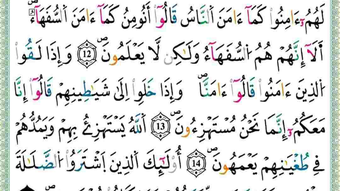 لَهُمُۥٓ ءَامِنُوا۟ كَمَآ ءَامَنَ ٱلنَّاسُ قَالُوٓا۟ أَنُومِنُ كَمَآ ءَامَنَ ٱلسُّفَهَآءُ
أَلَآ إِنَّهُمْ هُمُ ٱلسُّفَهَآءُ وَلَٰكِن لَّا يَعْلَمُونَ 12 وَإِذَا لَقُوا۟
ٱلَّذِينَ ءَامَنُوا۟ قَالُوٓا۟ ءَامَنَّا وَإِذَا خَلَوْا۟ إِلَىٰ شَيَٰطِينِهِمْ قَالُوٓا۟ إِنَّا
مَعَكُمُۥٓ إِنَّمَا نَحْنُ مُسْتَهْزِءُونَ 13 ٱللَّهُ يَسْتَهْزِئُ بِهِمْ وَيَمُدُّهُمْ
فِى طُغْيَٰنِهِمْ يَعْمَهُونَ 14 أُو۟لَٰٓئِكَ ٱلَّذِينَ ٱشْتَرَوُا۟ ٱلضَّلَٰلَةَ